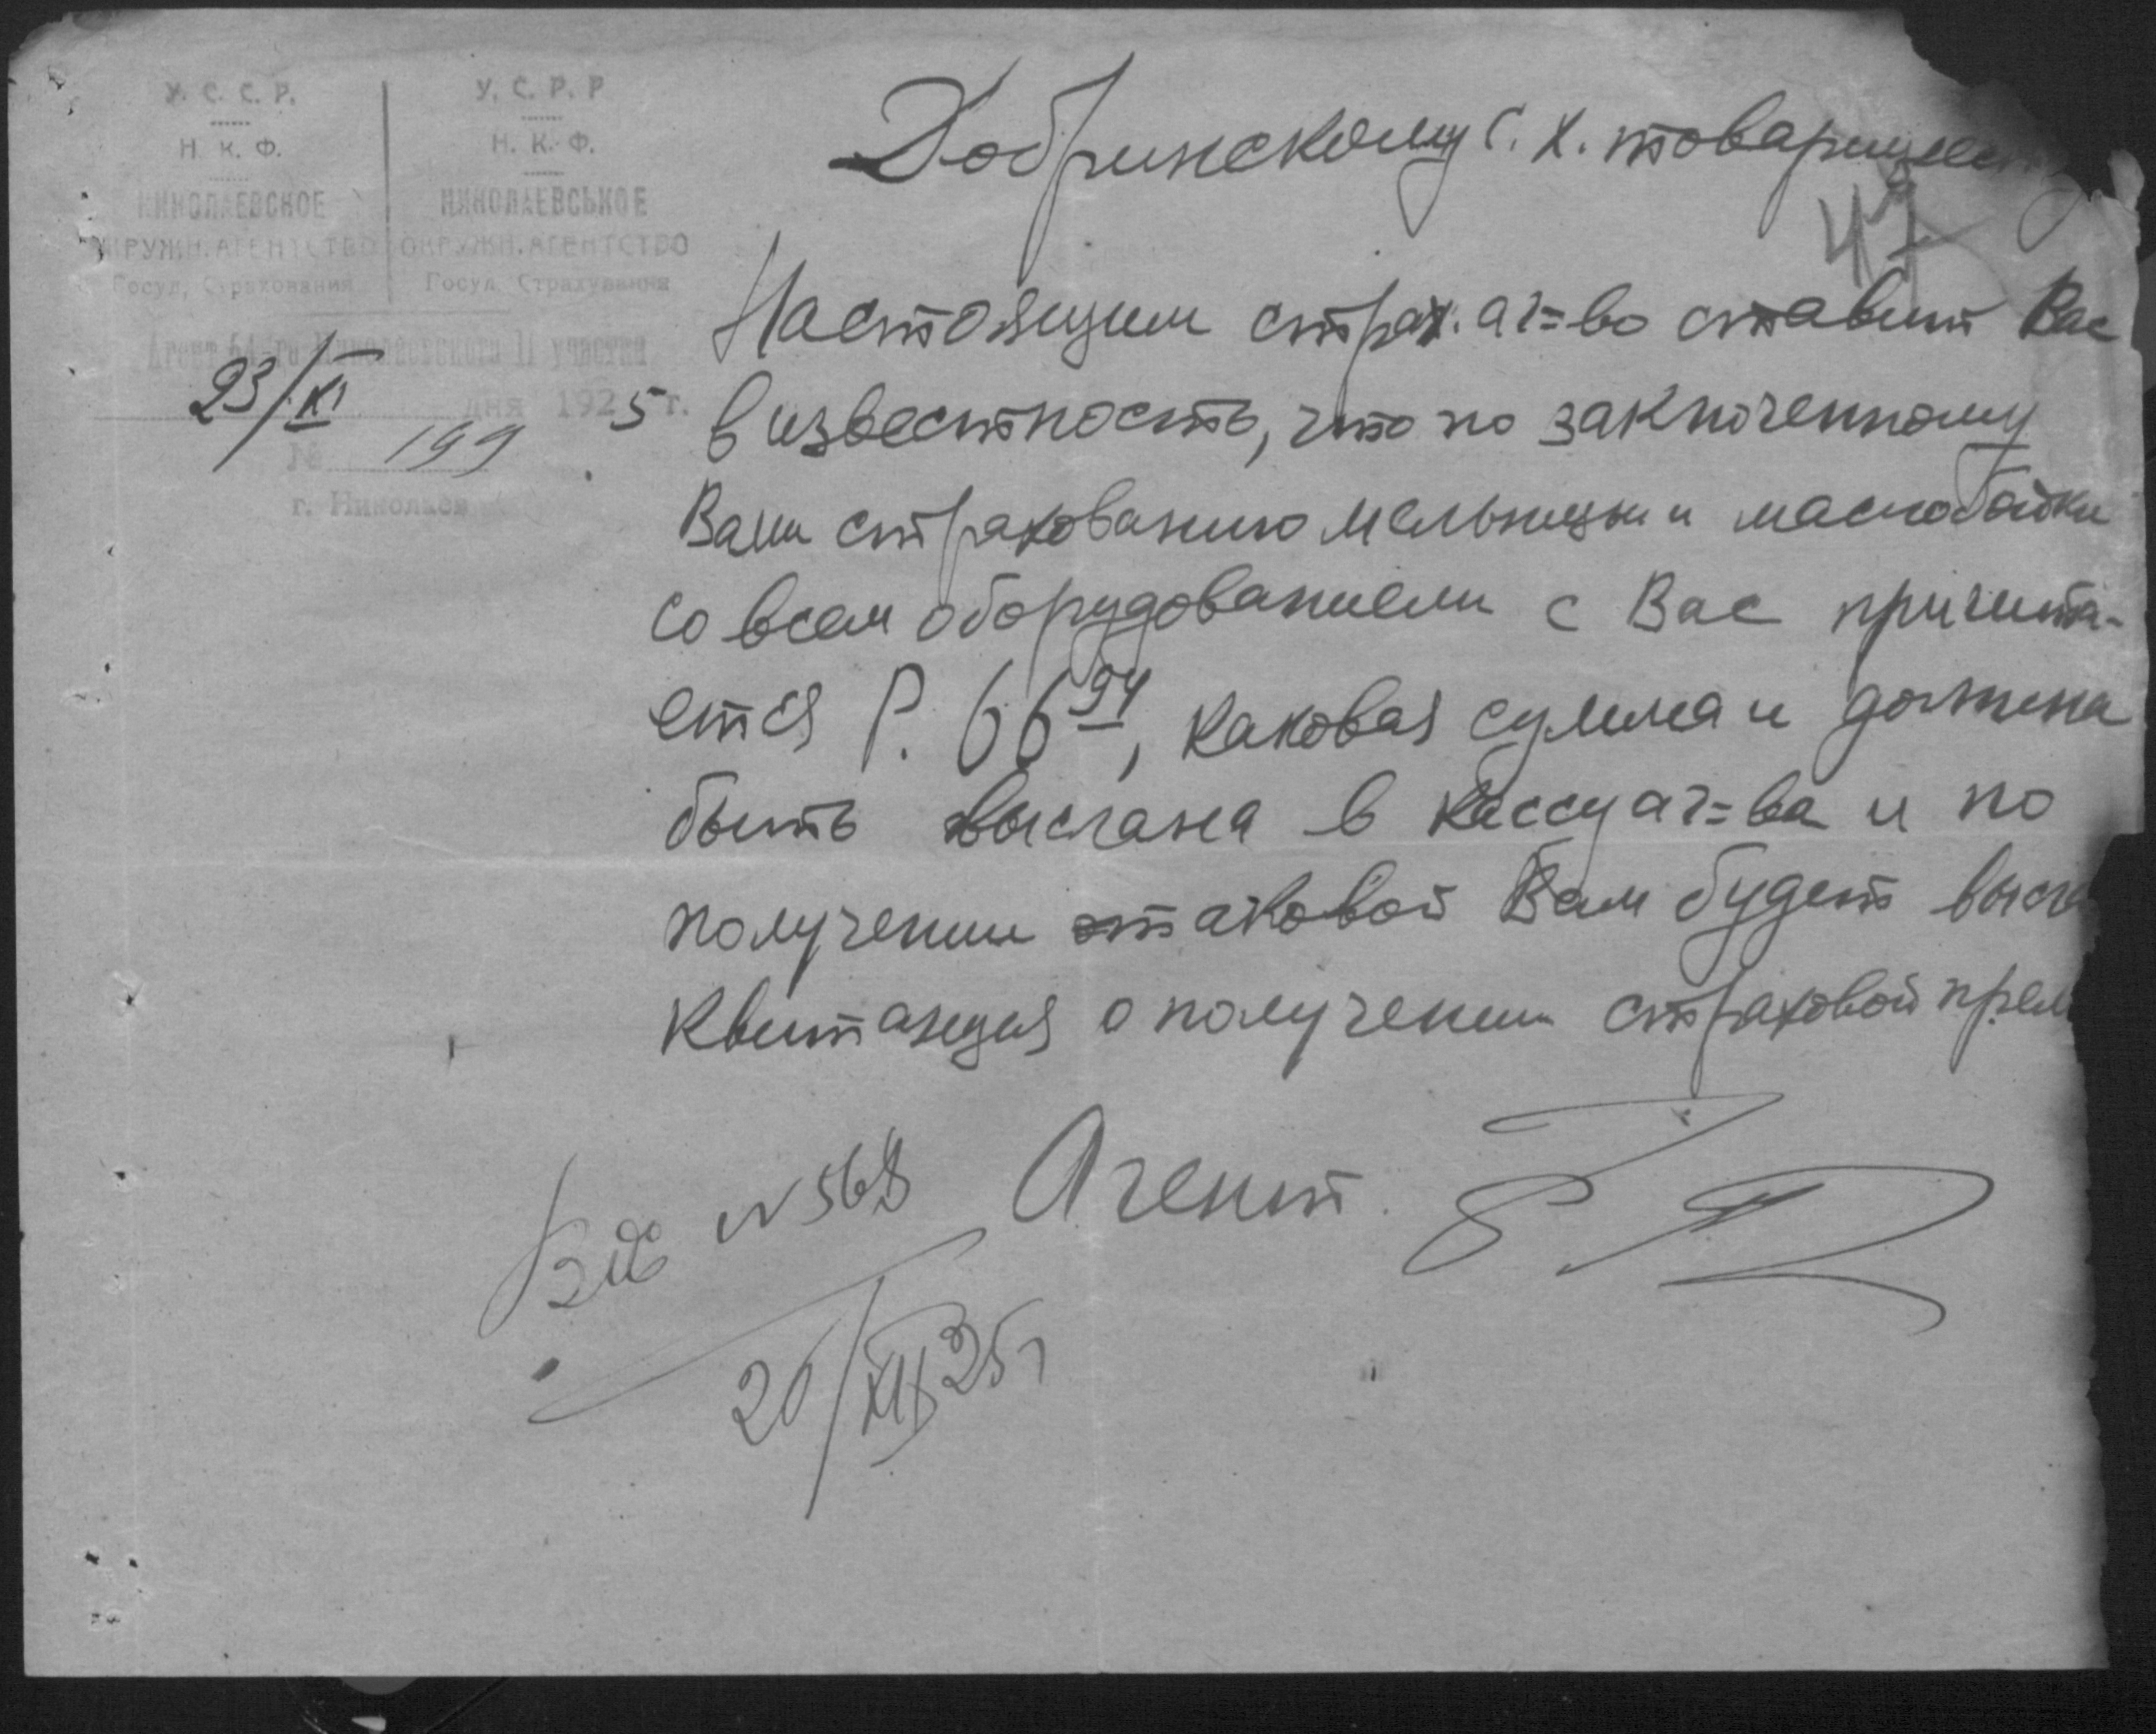 У. С. С. Р.
Н. К. Ф.
НИКОЛАЕВСКОЕ
ОКРУЖН. АГЕНТСТВО
Госуд. Страхования
У. С. Р. Р
Н. К. Ф.
НИКОЛАЕВСЬКОЕ
ОКРУЖН. АГЕНТСТВО
Госуд. Страхування
Агент 64-го Николаевского II участка
23/XI дня 1925 г.
№ 199
г. Николаев
Добринскому С. Х. товариществу
47
Настоящим страх. аг=во ставит Вас
в известность, что по заключенному
Вами страхованию мельницы и маслобойки
со всем оборудованием с Вас причита-
ется Р. 66 94, каковая сумма и должна
быть выслана в кассу аг=ва и по
получении таковой Вам будет высла
квитанция о получении страховой прем
Агент.
Вх № 568
20/XII 25 г